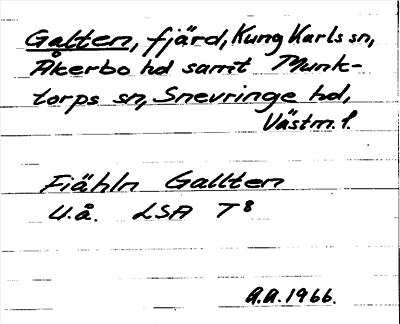 Galten, fjärd, Kung Karls sn,
Åkerbo hd samt Munk-
torps sn, Snevringe hd,
Västm. l.
Fiähln Gallten
U.å. LSA T 8
A.A. 1966.